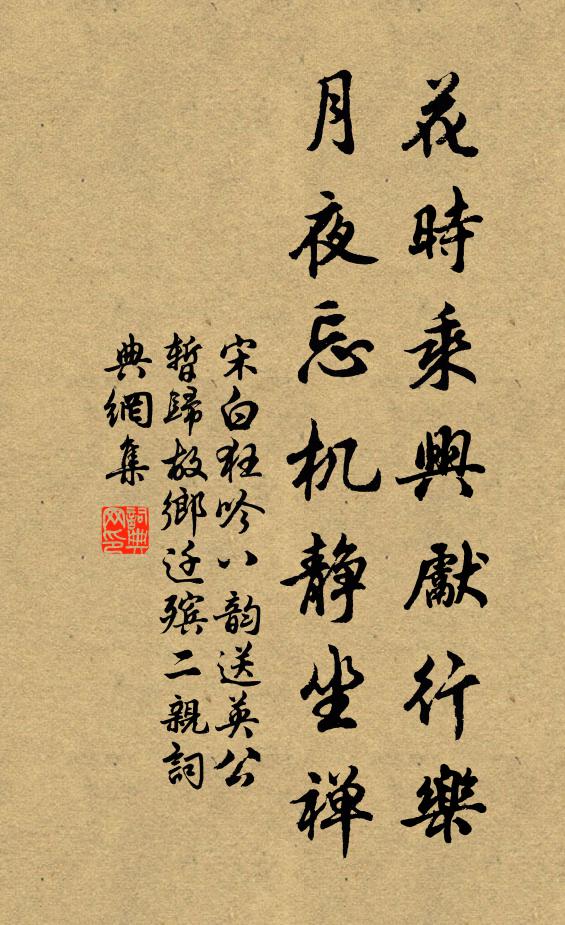 花時乘興獻行樂
月夜忘机静坐禅
宋白狂吟八韵送英公
暫歸故鄉迁殯二親詞
典網集
詞典
网印